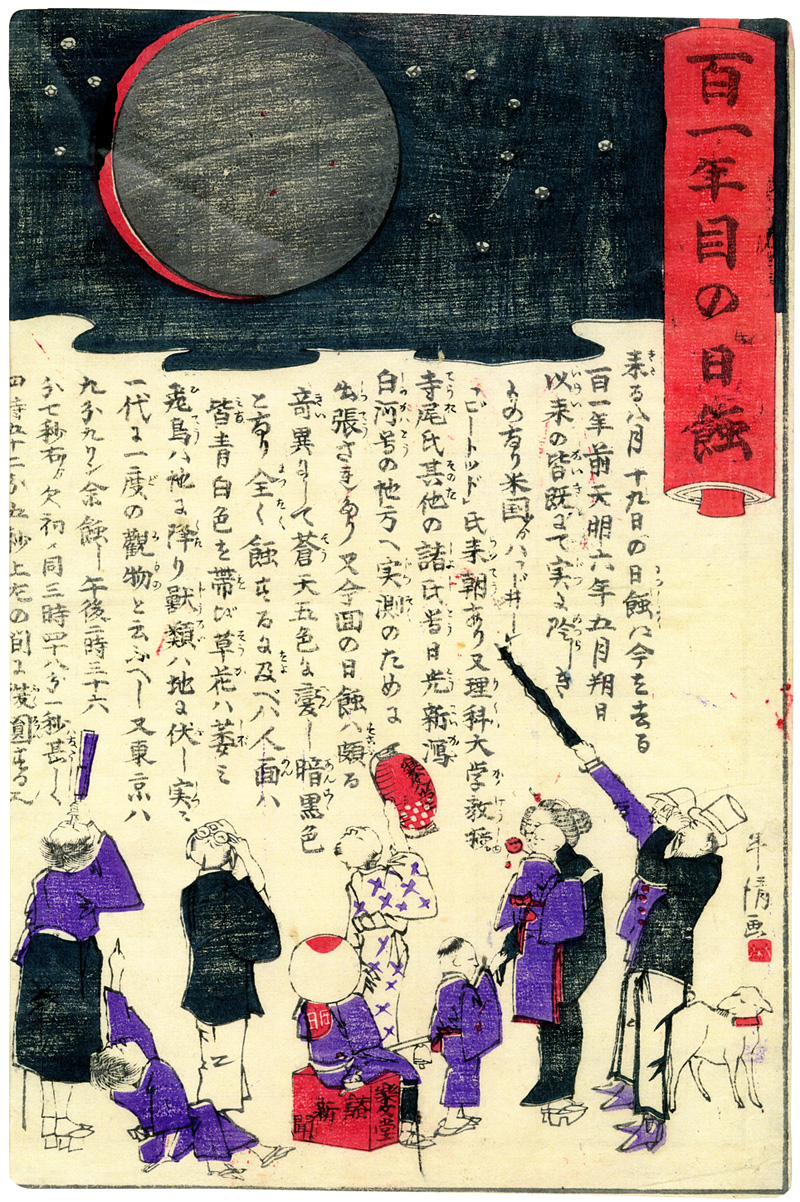 百一年目の日蝕
来る八月十九日の日蝕は今を去る
百一年前天明六年五月朔日
以来の皆既にて実に珍しき
もの有り米国ハーバード
「ビートッド」氏来朝あり又理科大学教授
寺尾氏其他の諸氏皆日光新潟
白河等の地方へ実測のために
出張さるゝあり又今回の日蝕ハ頗る
奇異にして蒼天五色に変し暗黒色
と有り全く蝕するに及べハ人面ハ
皆青白色を帯び草花ハ萎ミ
飛鳥ハ地に降り獣類ハ地に伏し実に
一代に一度の観物と云ふべし又東京ハ
九分九リン余蝕し午後二時三十六
分七秒右ゟ欠初め同三時四十八分一秒甚しく
四時五十二分五秒上左の間に復圓する
年信画
楽善堂
新聞